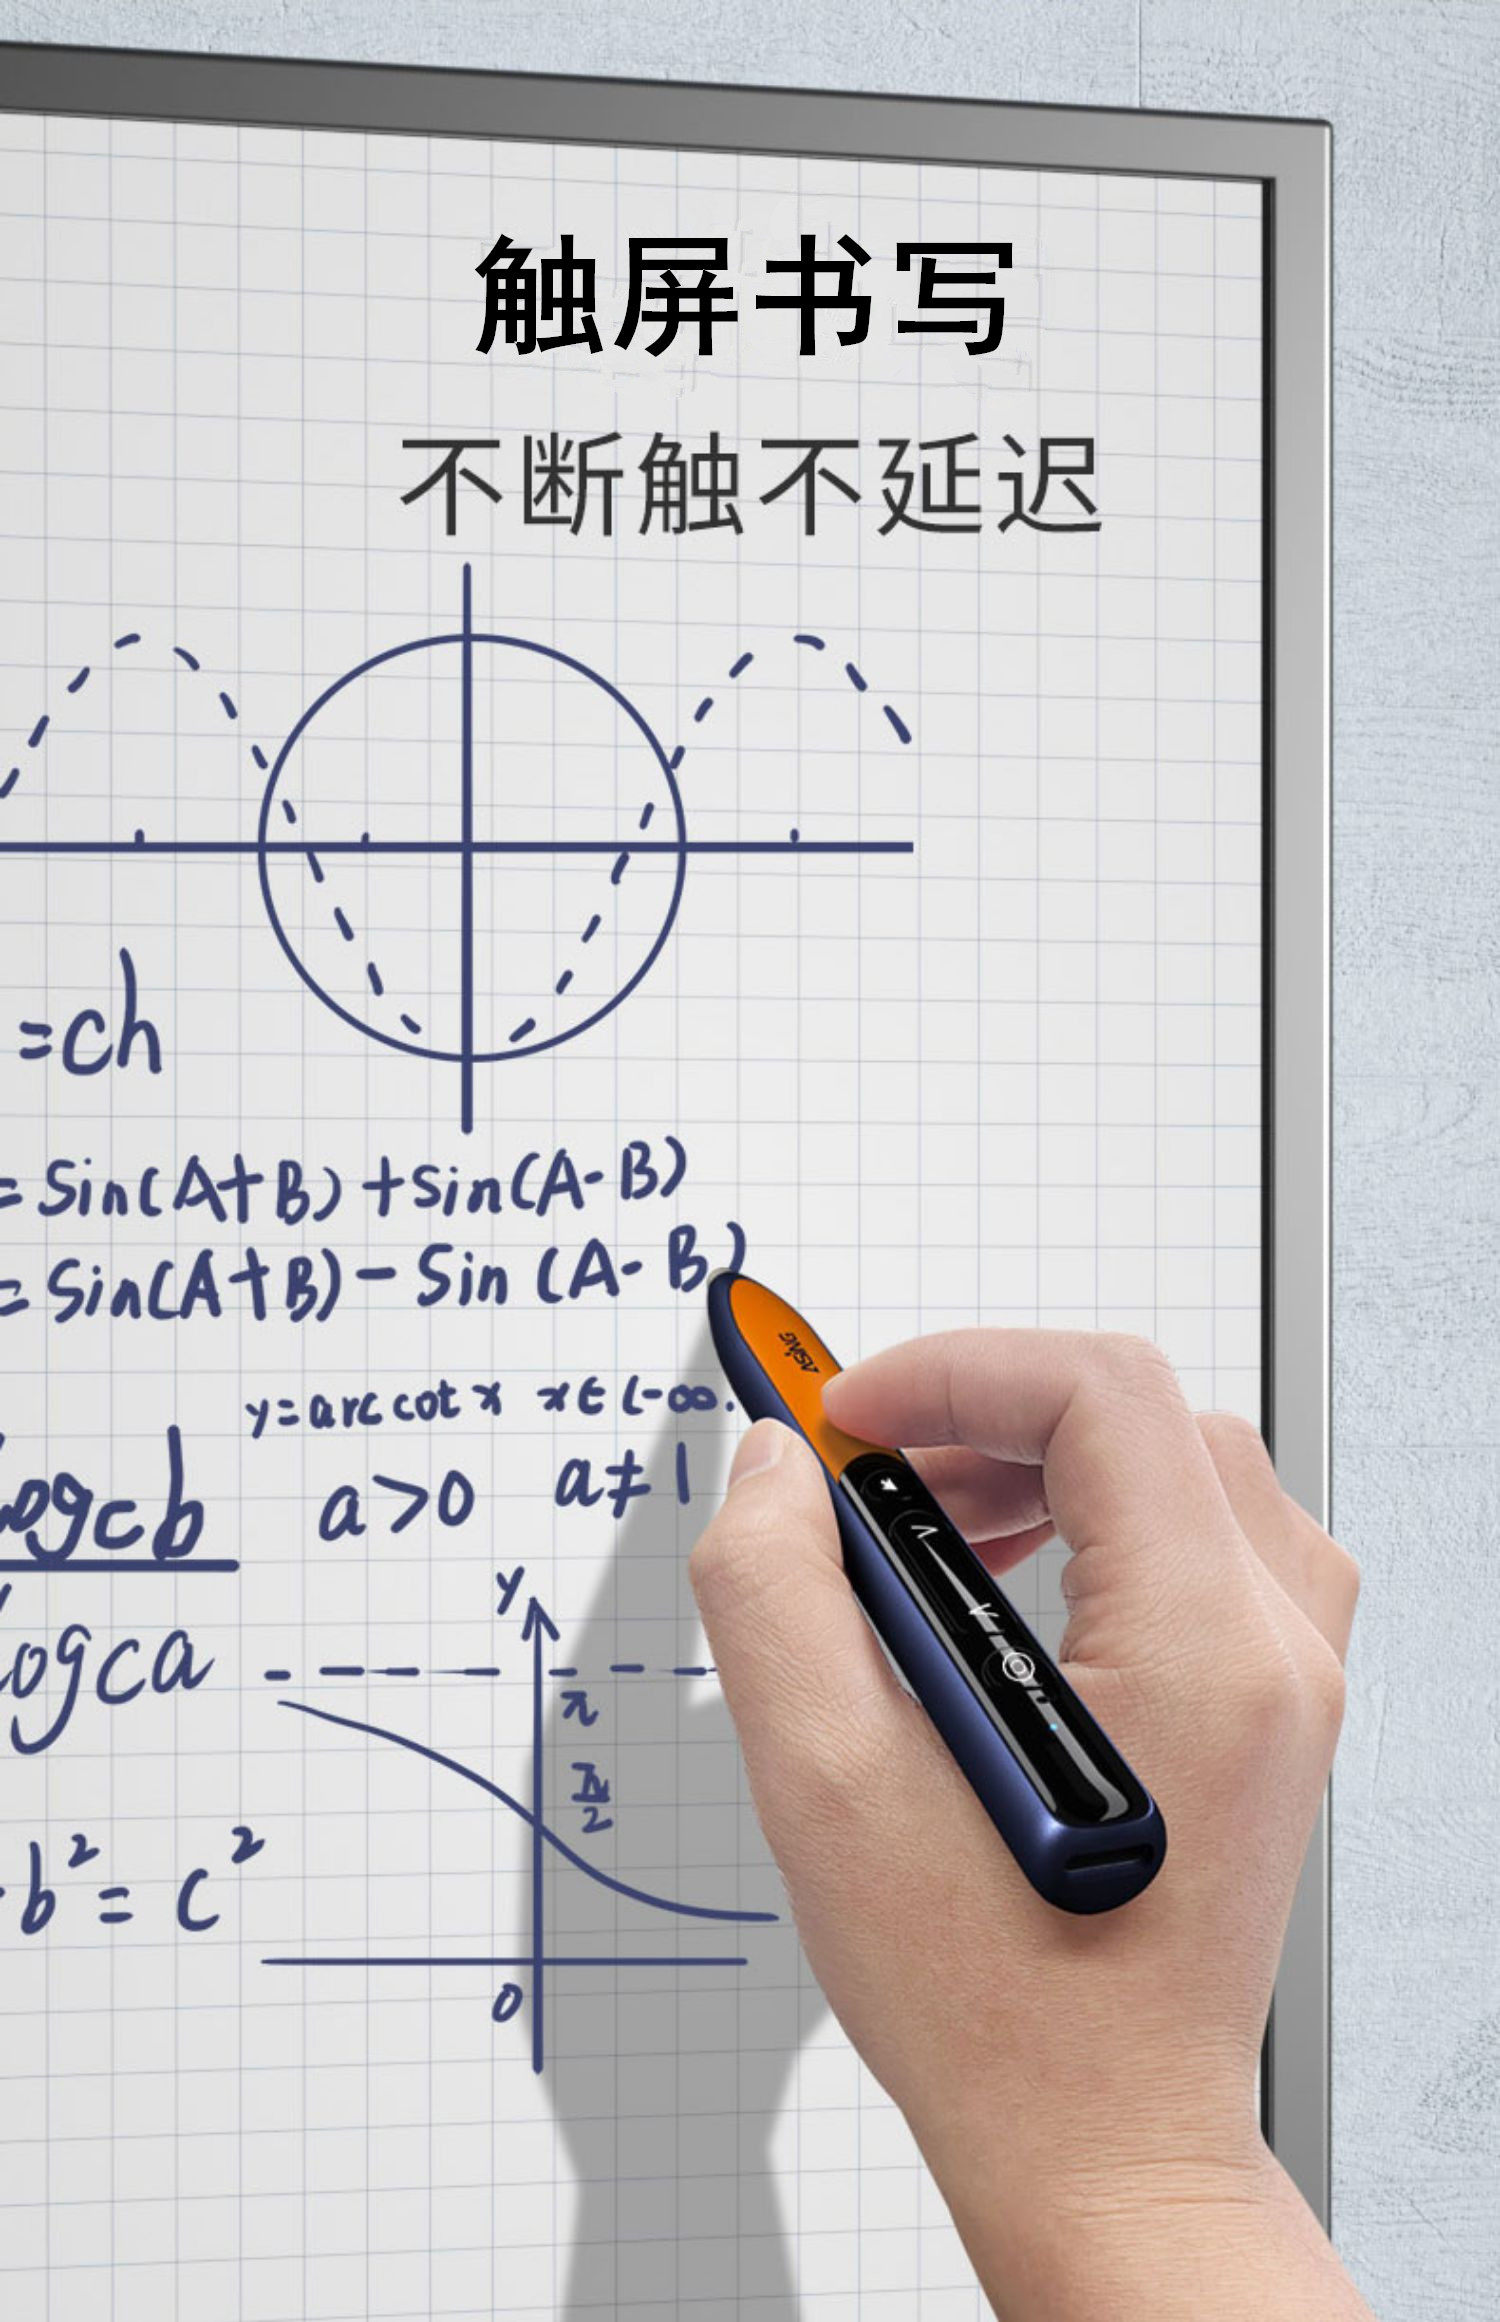 触屏书写
不断触不延迟
=ch
=Sin(A+B)+Sin(A-B)
=Sin(A+B)-Sin(A-B)
y=arccotx x∈(-∞.
ASiNG
logcb
a>0 a≠1
logca
y
π
π/2
b²=c²
0